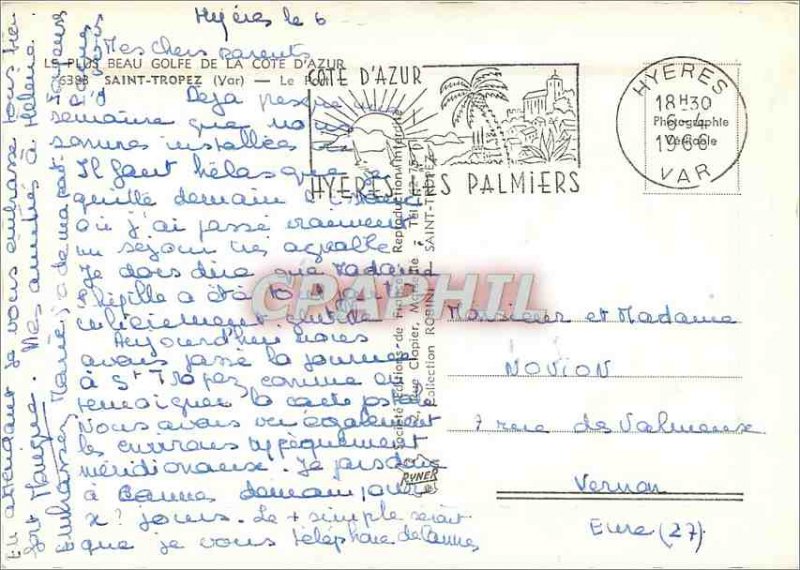 Hyères le 6
Mes chers parents
LE PLUS BEAU GOLFE DE LA CÔTE D'AZUR
6383 SAINT-TROPEZ (Var) — Le Port
Déjà presque une
semaine que nous
sommes installées
Il faut hélas que je
quitte demain
où j'ai passé vraiment
un séjour très agréable
Je dois dire que Madame
a été
Aujourd'hui nous
avons passé la journée
à St Tropez comme en
témoigne la carte postale
Nous avons vu également
les environs typiquement
méridionaux. Je pars donc
à Cannes demain pour
x? jours. Le + simple serait
que je vous téléphone de Cannes
En attendant je vous embrasse tous bien
fort Monique. Mes amitiés à Hélène
Embrassez Marie
de ma part
CÔTE D'AZUR
HYERES LES PALMIERS
HYERES
18H30
6-4
1966
VAR
Photographie
Véritable
Société Éditions de France
Reproduction interdite
Rue Clapier, Marseille - Tél.
Collection ROBINI - SAINT-TROPEZ
RYNER
CPAPHIL
Monsieur et Madame
NOVION
7 rue de Valmeux
Vernon
Eure (27)